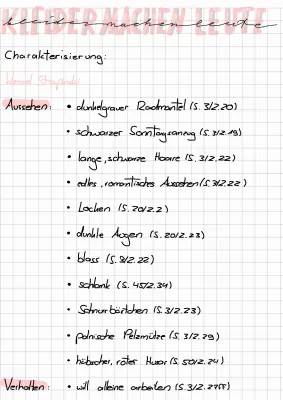 KLEIDER MACHEN LEUTE
kleider machen leute
Charakterisierung:
Wenzel Strapinski
Aussehen: • dunkelgrauer Radmantel (S. 3/Z.20)
• schwarzer Sonntagsanzug (S. 3/Z.19)
• lange, schwarze Haare (S. 3/Z.22)
• edles, romantisches Aussehen (S. 3/Z.22)
• Locken (S. 20/Z.2)
• dunkle Augen (S. 20/Z.23)
• blass (S. 3/Z.22)
• schlank (S. 45/Z.34)
• Schnurrbärtchen (S. 3/Z.23)
• polnische Pelzmütze (S. 3/Z.29)
• hübscher, roter Husar (S. 50/Z.24)
Verhalten: • will alleine arbeiten (S. 3/Z.27ff)